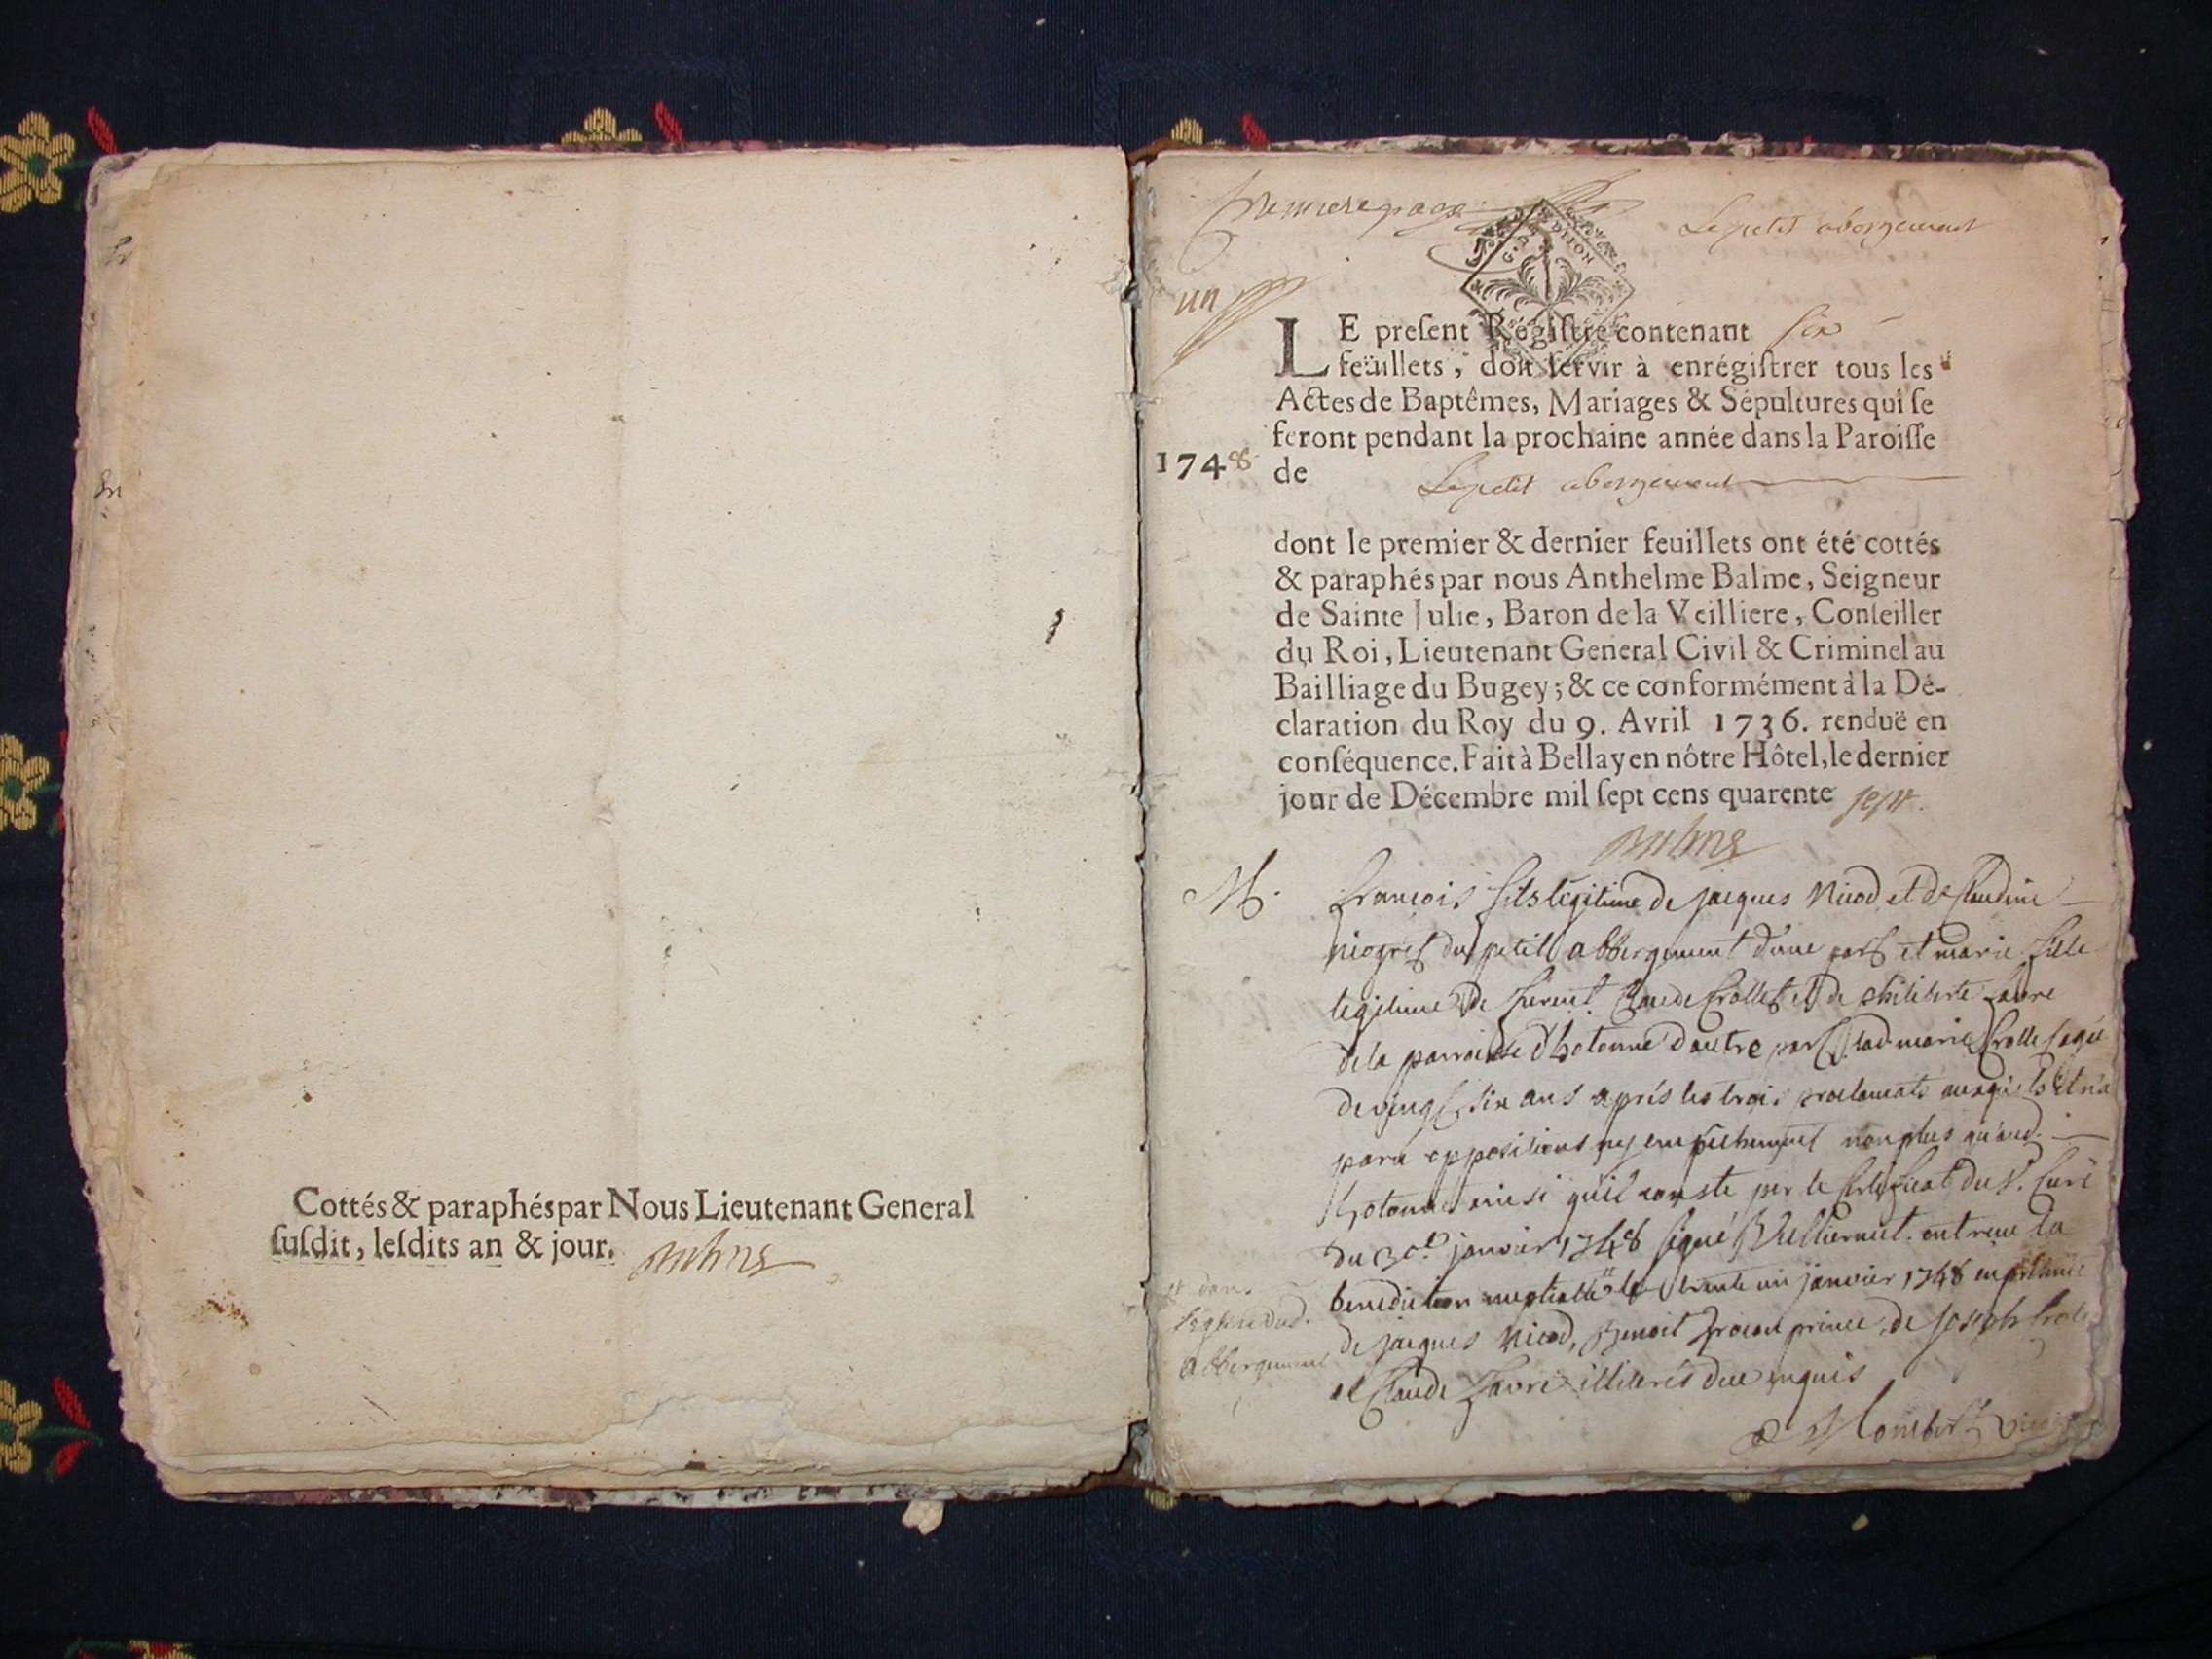 Cottés & paraphés par Nous Lieutenant General
ſuſdit, leſdits an & jour.
Premiere page
Le petit abergement
un
G. D DIJON
LE preſent Régiſtre contenant six
feüillets, doit ſervir à enrégiſtrer tous les
Actes de Baptêmes, Mariages & Sépultures qui ſe
feront pendant la prochaine année dans la Paroiſſe
1748
de Le petit abergement
dont le premier & dernier feuillets ont été cottés
& paraphés par nous Anthelme Balme, Seigneur
de Sainte Julie, Baron de la Veilliere, Conſeiller
du Roi, Lieutenant General Civil & Criminel au
Bailliage du Bugey; & ce conformément à la Dé-
claration du Roy du 9. Avril 1736. renduë en
conſéquence. Fait à Bellay en nôtre Hôtel, le dernier
jour de Décembre mil ſept cens quarente sept.
Balme
M.
francois fils légitime de jacques Nicod et de Claudine
du petit abbergement d'une part et marie fille
legitime de Claude Crollet et de philiberte favre
de la parroisse d'hotonne d'autre part lad. marie agée
de vingt six ans après les trois proclamats
oppositions ny empêchement non plus qu'aud.
hotonne ainsi qu'il conste par le certificat du Sr. curé
du 30e. janvier 1748 signé ont recu la
benediction nuptialle le trente un janvier 1748 en
de jacques Nicod, Benoit de joseph
et Claude favre illiterés enquis
dans
l'eglise dud.
abbergement